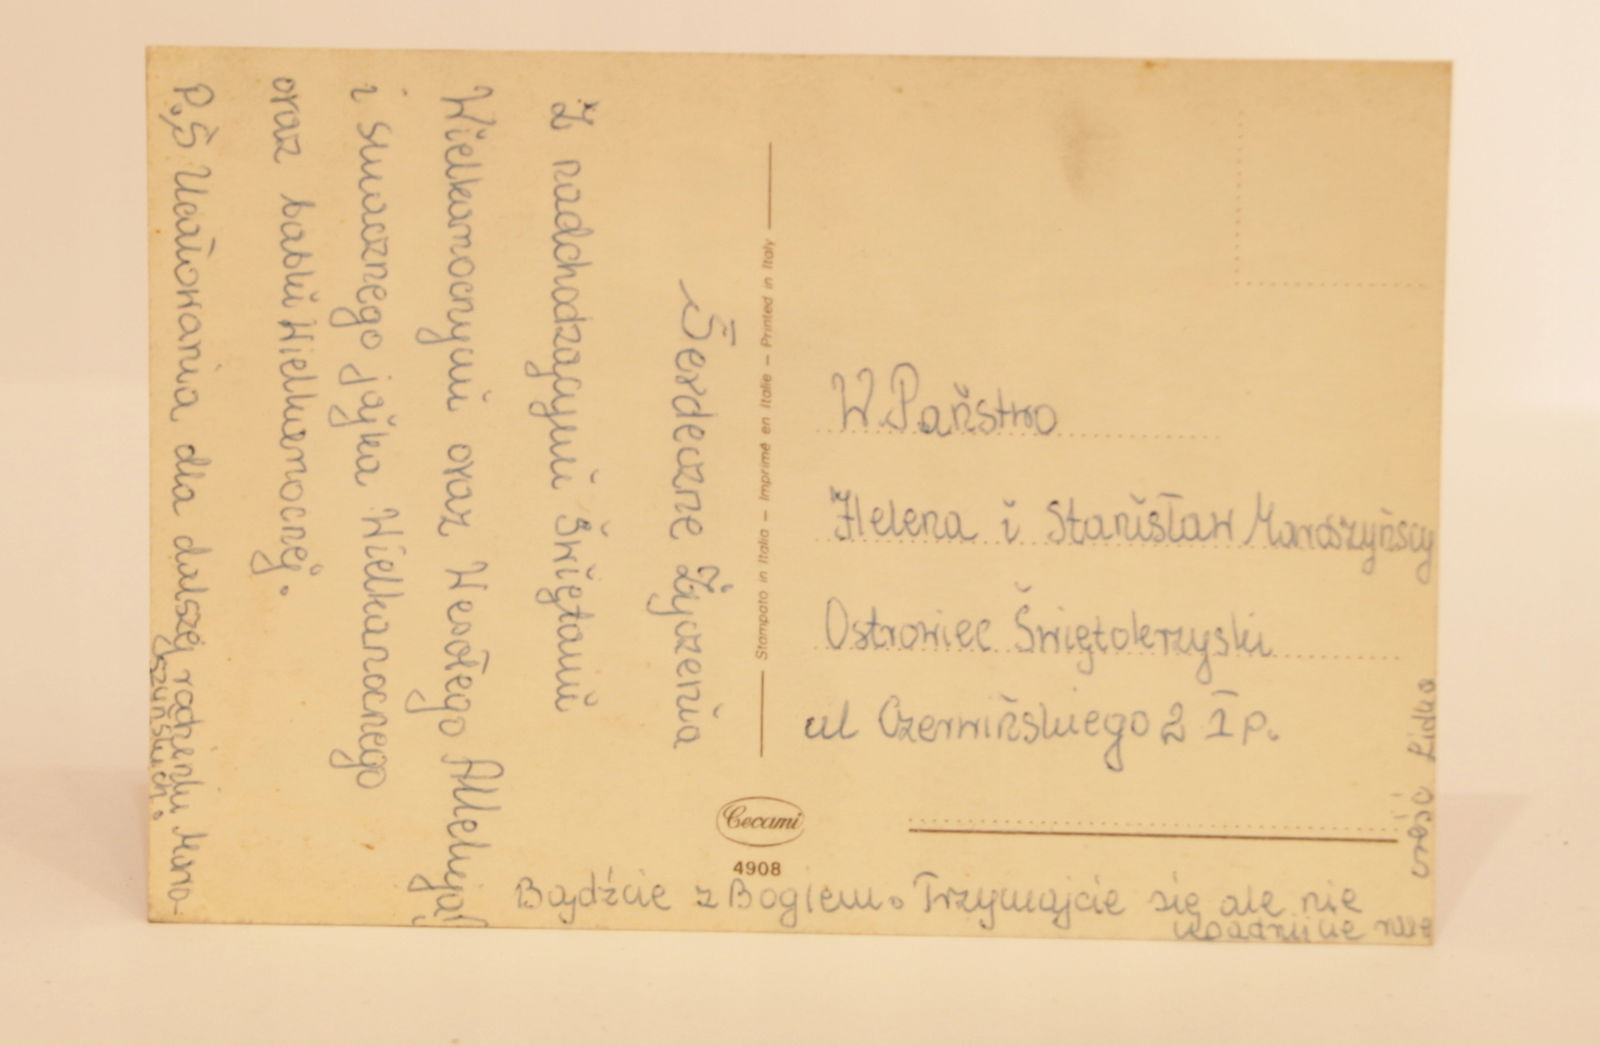 Serdeczne Życzenia
Z nadchodzącymi Świętami
Wielkanocnymi oraz Wesołego Alleluja!
i smacznego jajka Wielkanocnego
oraz babki Wielkanocnej.
P.S Ucałowania dla dalszej rodzinki Maro-
szyńskich.
Stampato in Italia – Imprimé en Italie – Printed in Italy
W Państwo
Helena i Stanisław Maroszyńscy
Ostrowiec Świętokrzyski
ul Czerwińskiego 2 I p.
Cecami
4908
Bądźcie z Bogiem. Trzymajcie się ale nie
cześć Lidka